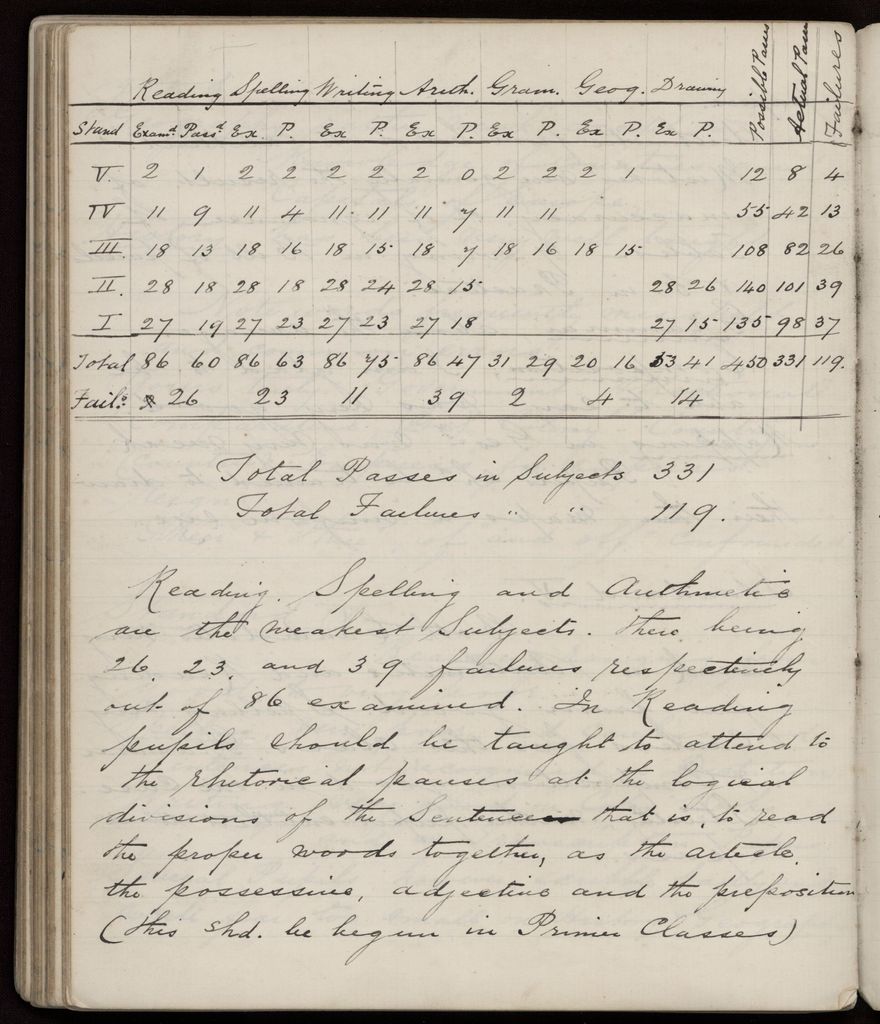 Reading Spelling Writing Arith. Gram. Geog. Drawing Possible Passes Actual Passes Failures
Stand Examd. Passd. Ex. P. Ex P. Ex P. Ex P. Ex P. Ex P.
V. 2 1 2 2 2 2 2 0 2 2 2 1 12 8 4
IV 11 9 11 4 11 11 11 7 11 11 55 42 13
III. 18 13 18 16 18 15 18 7 18 16 18 15 108 82 26
II. 28 18 28 18 28 24 28 15 28 26 140 101 39
I 27 19 27 23 27 23 27 18 27 15 135 98 37
Total 86 60 86 63 86 75 86 47 31 29 20 16 53 41 450 331 119.
Fails. 26 23 11 39 2 4 14
Total Passes in Subjects 331
Total Failures " " 119.
Reading, Spelling and Arithmetic
are the weakest Subjects. There being
26, 23, and 39 failures respectively
out of 86 examined. In Reading
pupils should be taught to attend to
the rhetorical pauses at the logical
divisions of the Sentence that is, to read
the proper words together, as the article,
the possessive, adjective and the preposition
(this shd. be begun in Primer Classes)